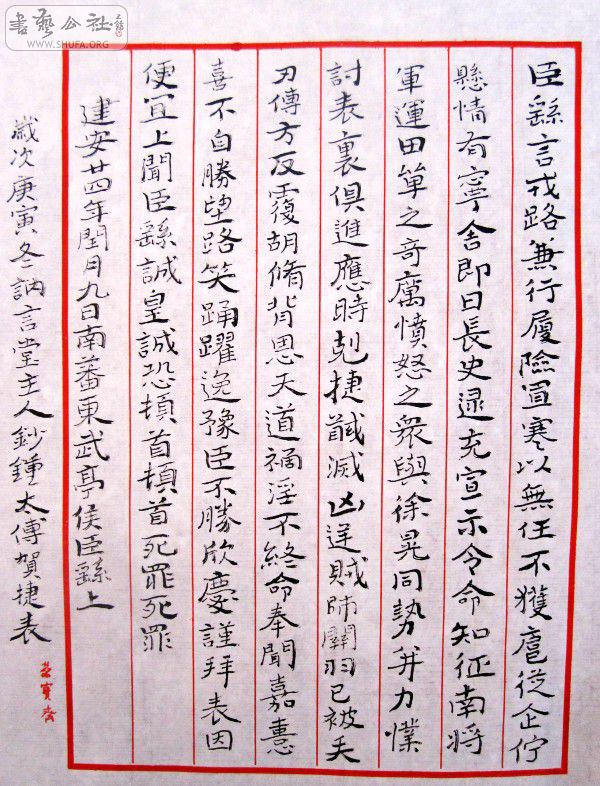 書藝公社
WWW.SHUFA.ORG
臣繇言戎路兼行履險冒寒以無任不獲扈從企佇
懸情有寧舍即日長史逯充宣示令命知征南將
軍運田單之奇厲憤怒之眾與徐晃同勢并力撲
討表裏俱進應時剋捷馘滅凶逆賊帥關羽已被矢
刃傅方反覆胡脩背恩天道禍淫不終命奉聞嘉憙
喜不自勝望路笑踊躍逸豫臣不勝欣慶謹拜表因
便宜上聞臣繇誠皇誠恐頓首頓首死罪死罪
建安廿四年閏月九日南蕃東武亭侯臣繇上
歲次庚寅冬訥言堂主人鈔鍾太傅賀捷表
榮寶齋